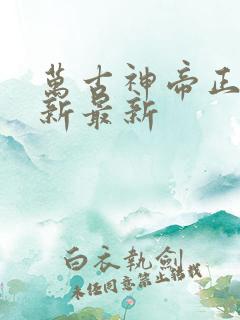 萬古神帝正
新最新
白衣執劍
未经同意禁止转载